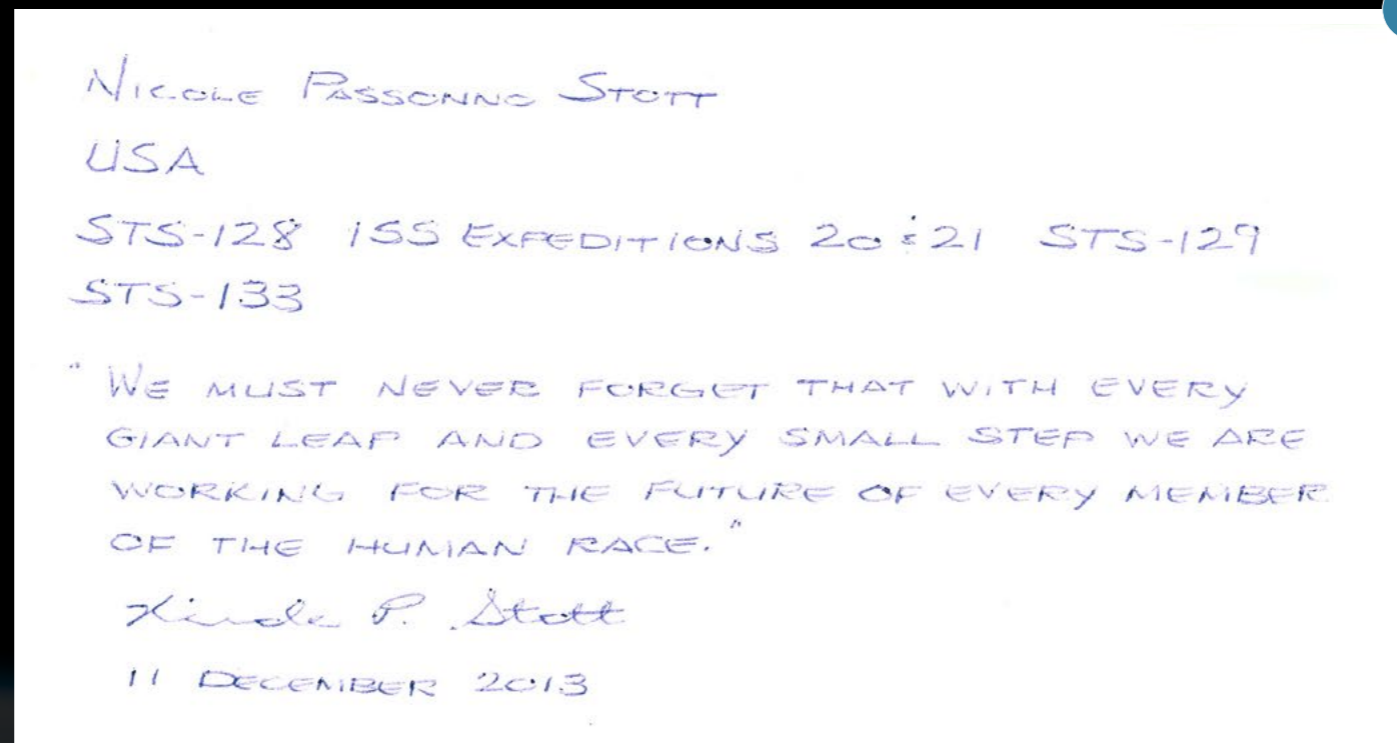 NICOLE PASSONNO STOTT
USA
STS-128 ISS EXPEDITIONS 20 & 21 STS-129
STS-133
"WE MUST NEVER FORGET THAT WITH EVERY
GIANT LEAP AND EVERY SMALL STEP WE ARE
WORKING FOR THE FUTURE OF EVERY MEMBER
OF THE HUMAN RACE."
Nicole P. Stott
11 DECEMBER 2013